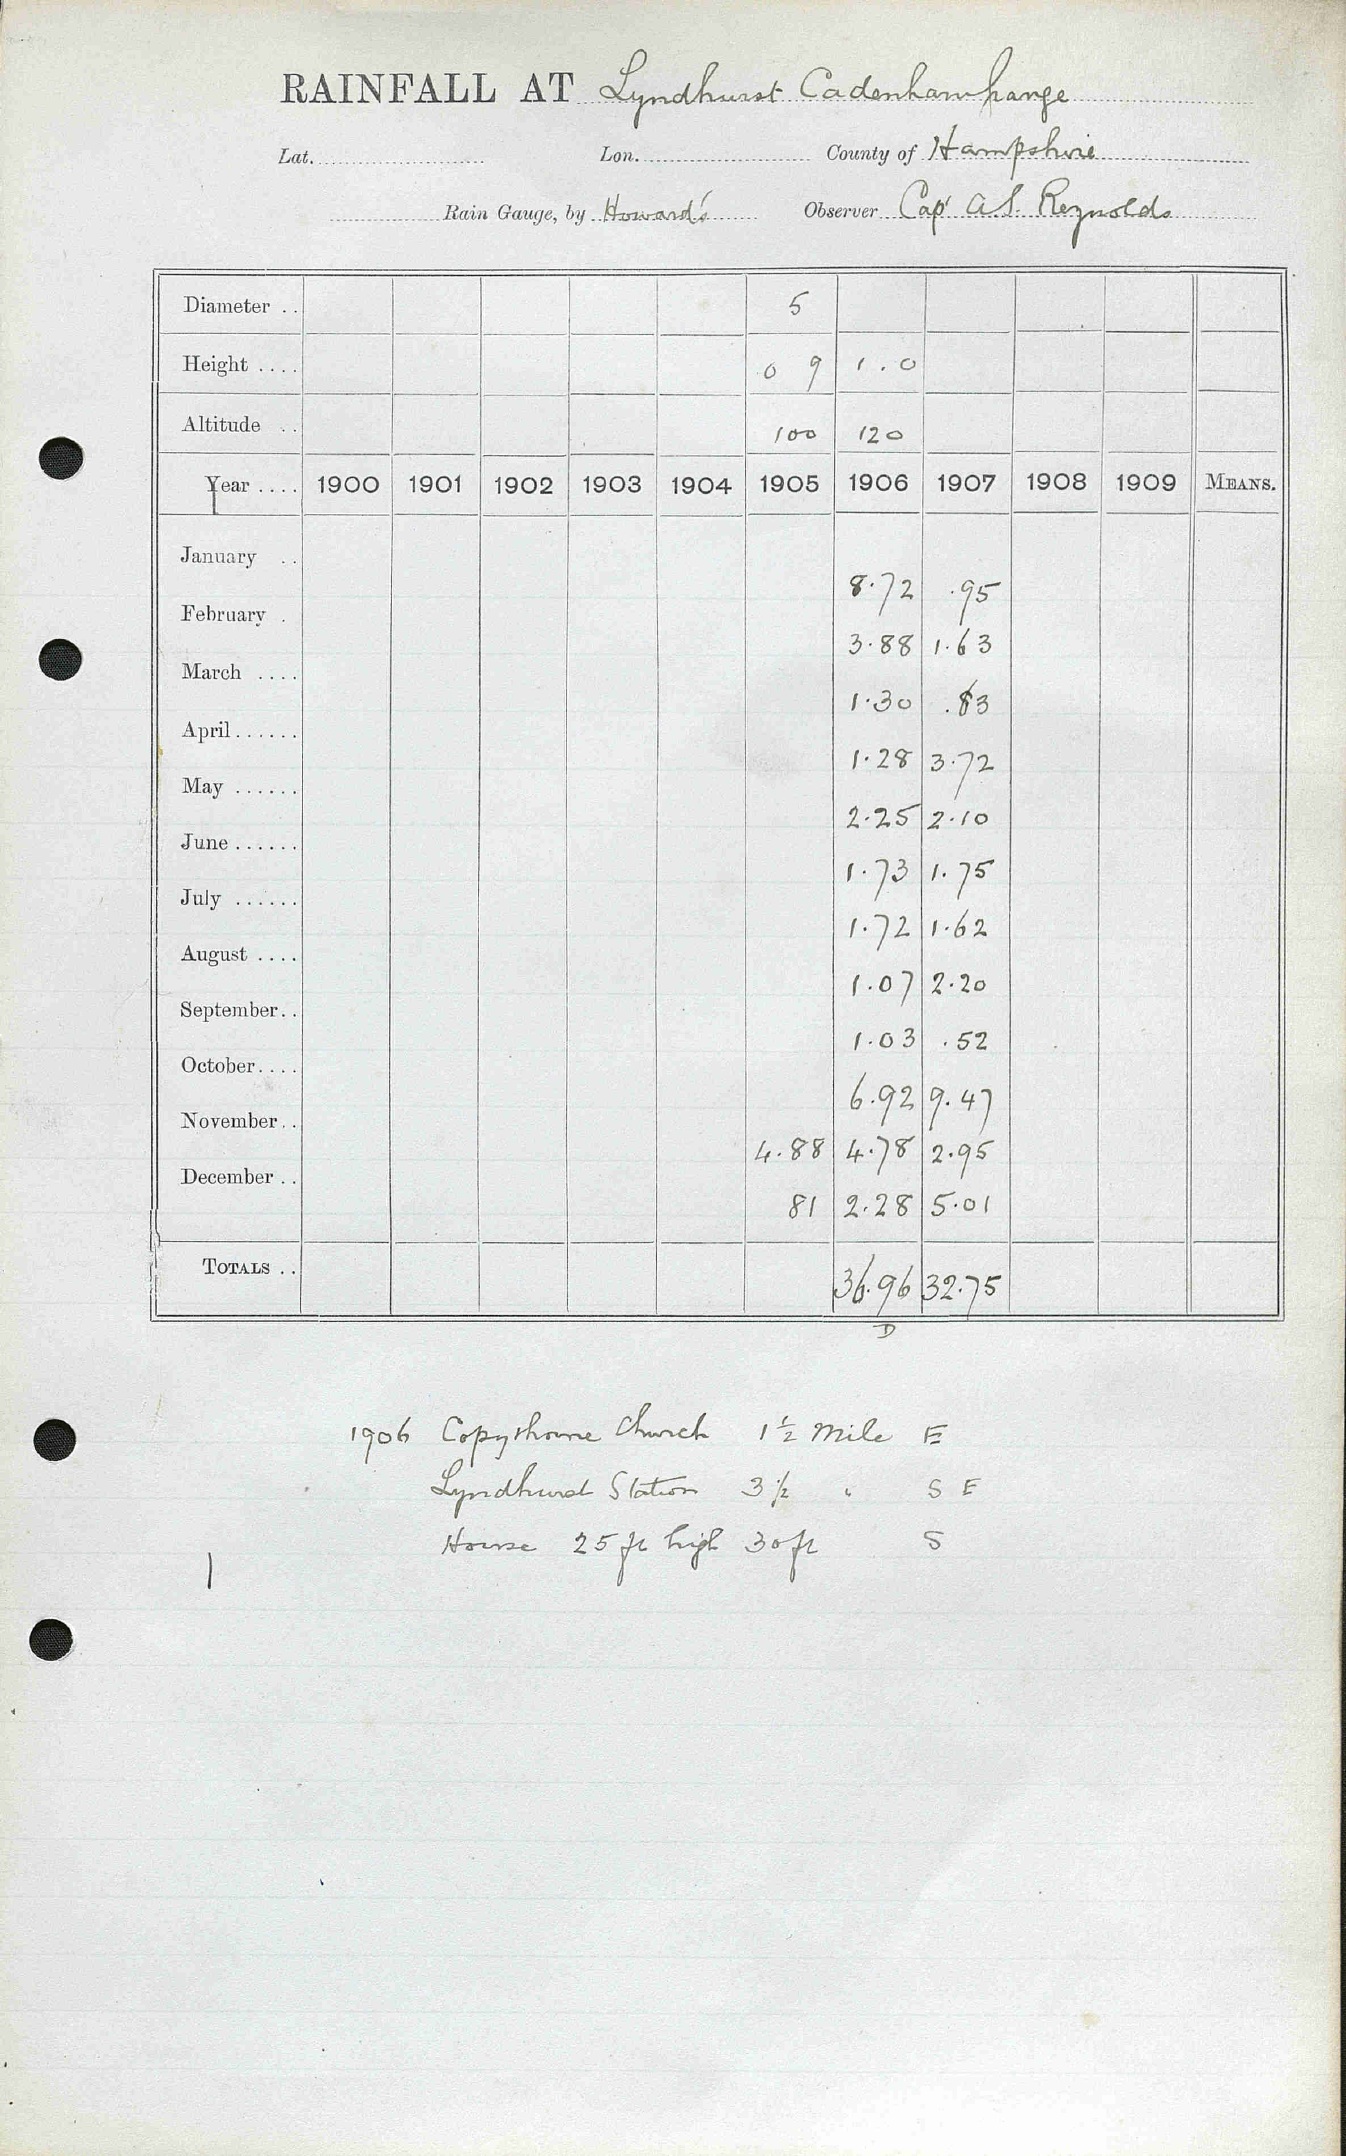 RAINFALL AT Lyndhurst Cadenham hange
Lat. Lon. County of Hampshire
Rain Gauge, by Howard's Observer Capt A.S. Reynolds
Diameter .. 5
Height .... 0 9 1.0
Altitude .. 100 120
Year .... 1900 1901 1902 1903 1904 1905 1906 1907 1908 1909 MEANS.
January .. 8.72 .95
February . 3.88 1.63
March .... 1.30 .83
April ...... 1.28 3.72
May ...... 2.25 2.10
June ...... 1.73 1.75
July ...... 1.72 1.62
August .... 1.07 2.20
September .. 1.03 .52
October .... 6.92 9.47
November .. 4.88 4.78 2.95
December .. 81 2.28 5.01
TOTALS .. 36.96 32.75
D
1906 Copythorne Church 1½ Mile E
Lyndhurst Station 3½ " S E
House 25 ft high 30 ft S